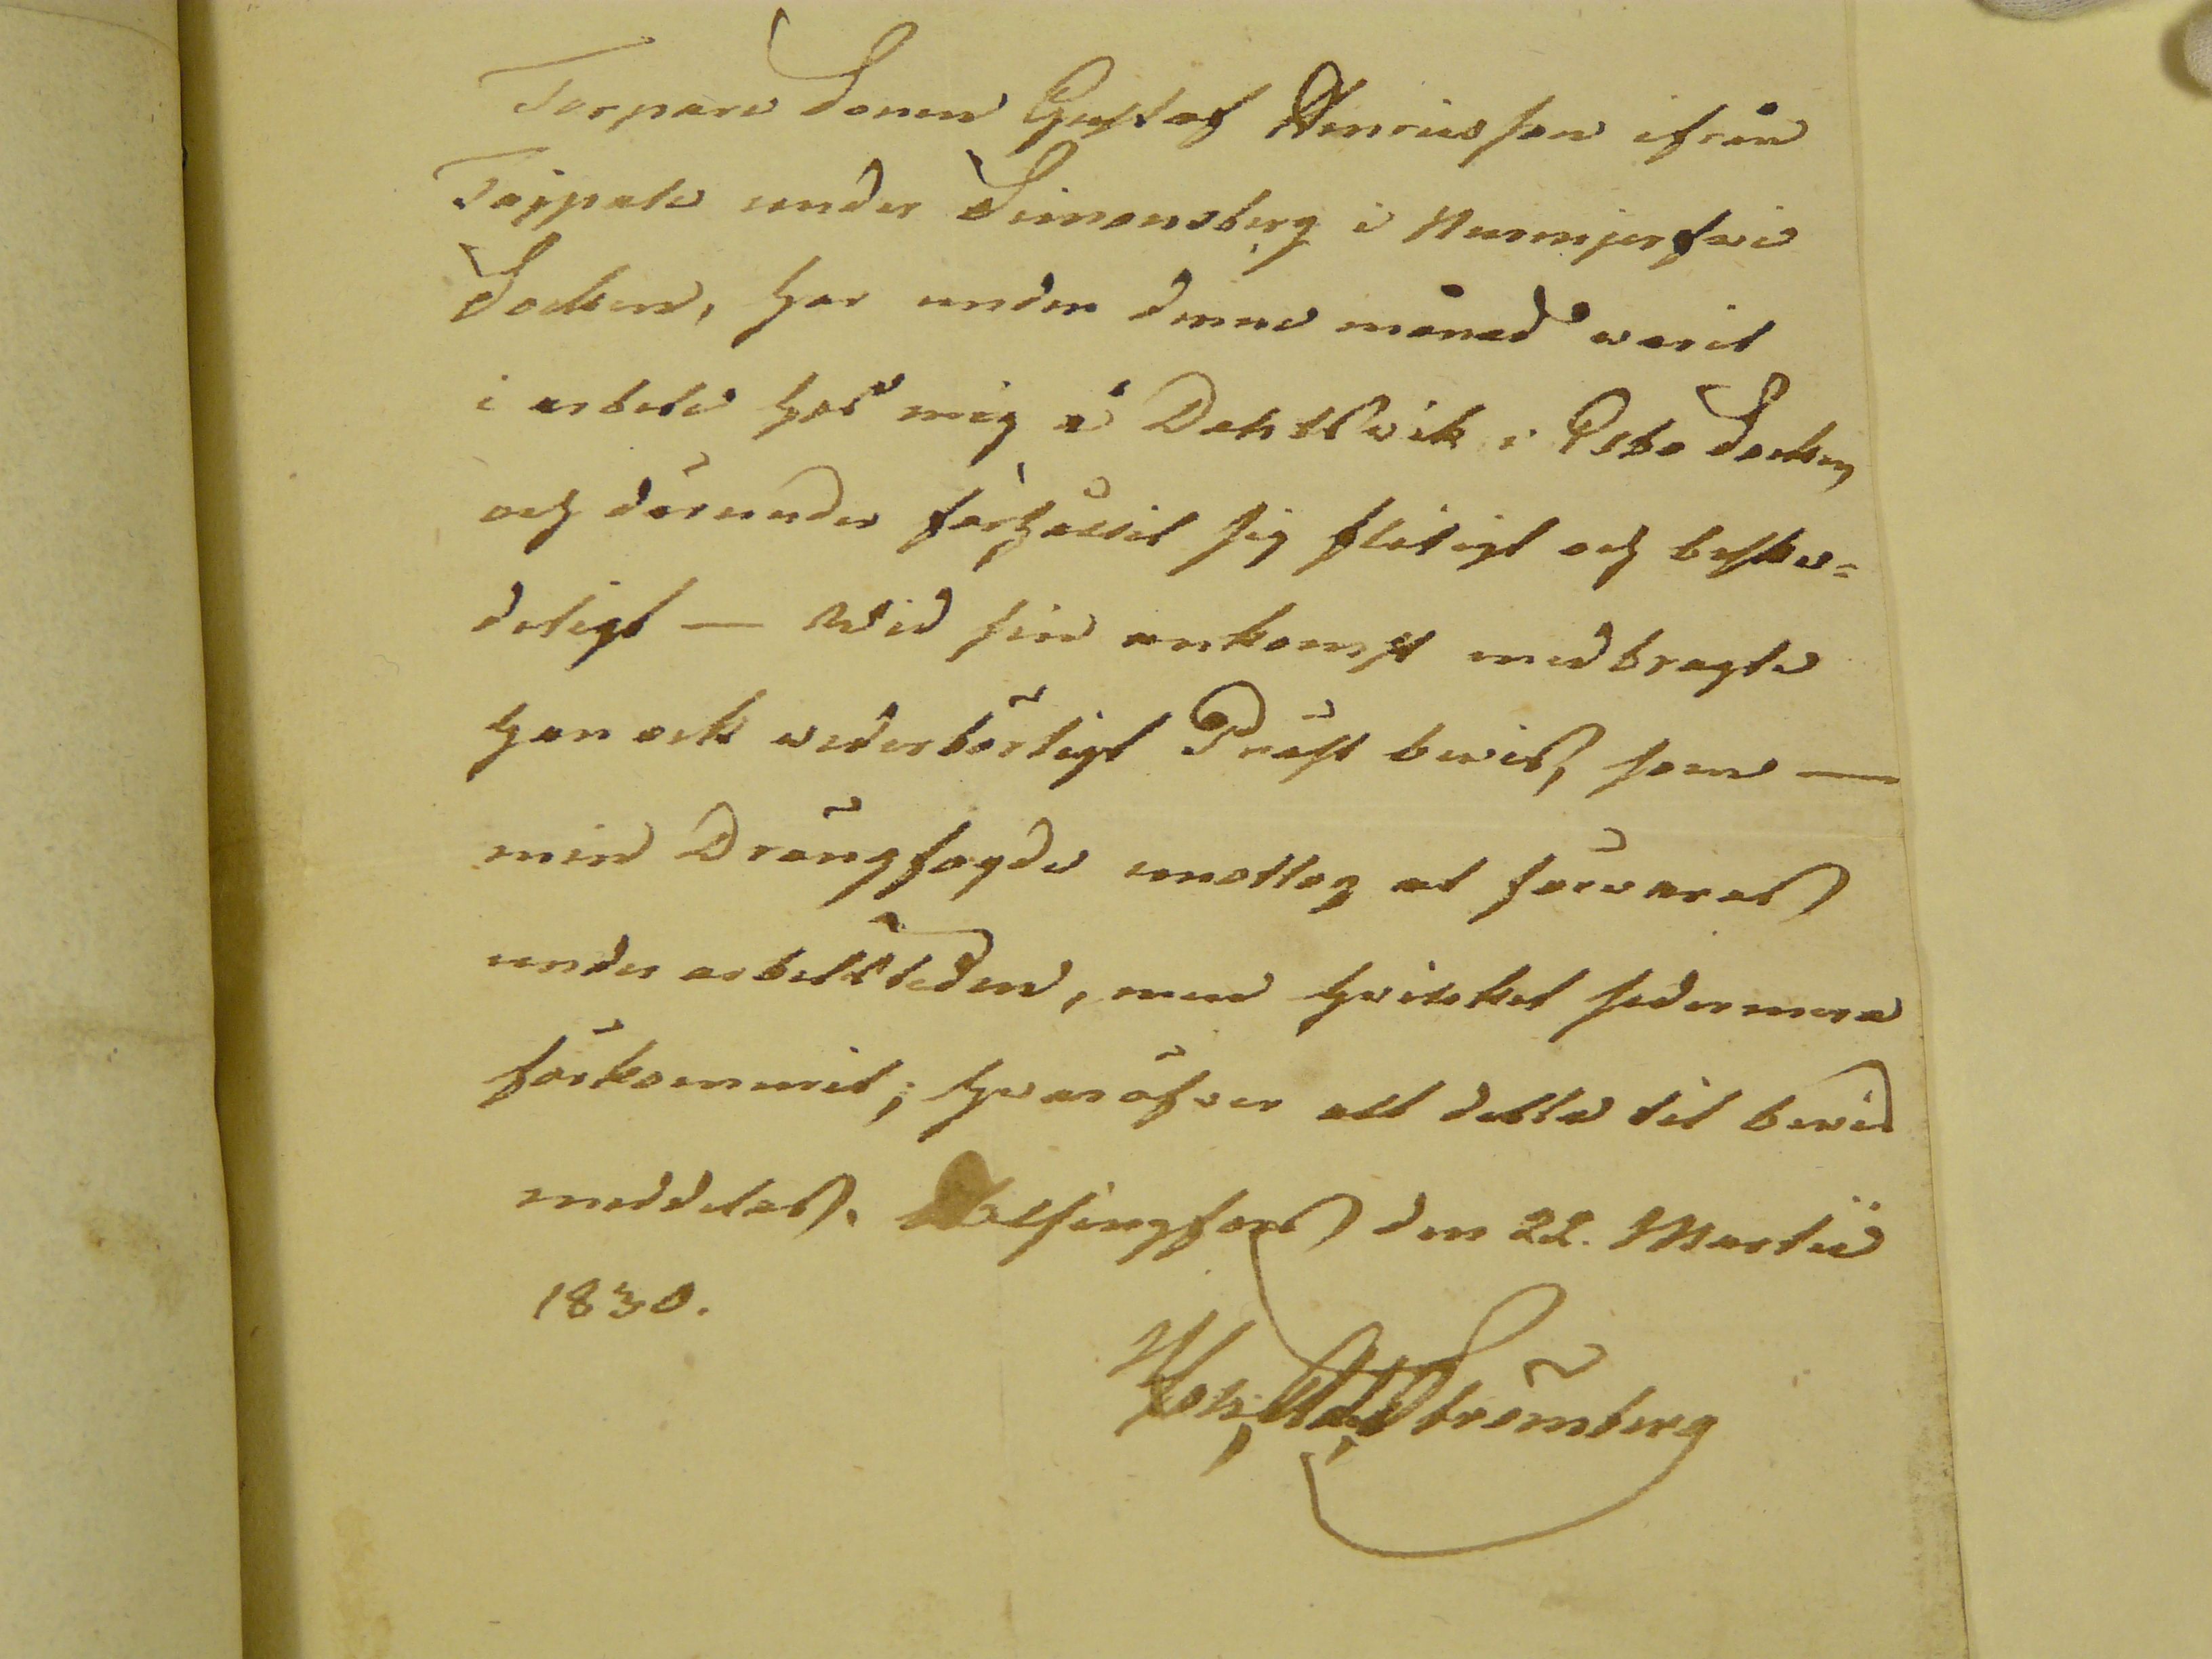 Torpare Sonen Gustaf Henricsson ifrån
Taipale under Simonsberg i Nurmijerfwi
Socken, har under denne månad warit
i arbete hos mig å Dahlswik i Esbo Socken
och därunder förhållit sig flitigt och beske=
deligt — Wid sin ankomst medbragte
han ock wederbörligt Präst bewis, som —
min Drängfogde emottog at förwaras
under arbetstiden, men hvilcket sedermera
förkommit; hwaröfver alt detta til bewis
meddelas. Helsingfors den 22. Martii
1830.
Strömberg